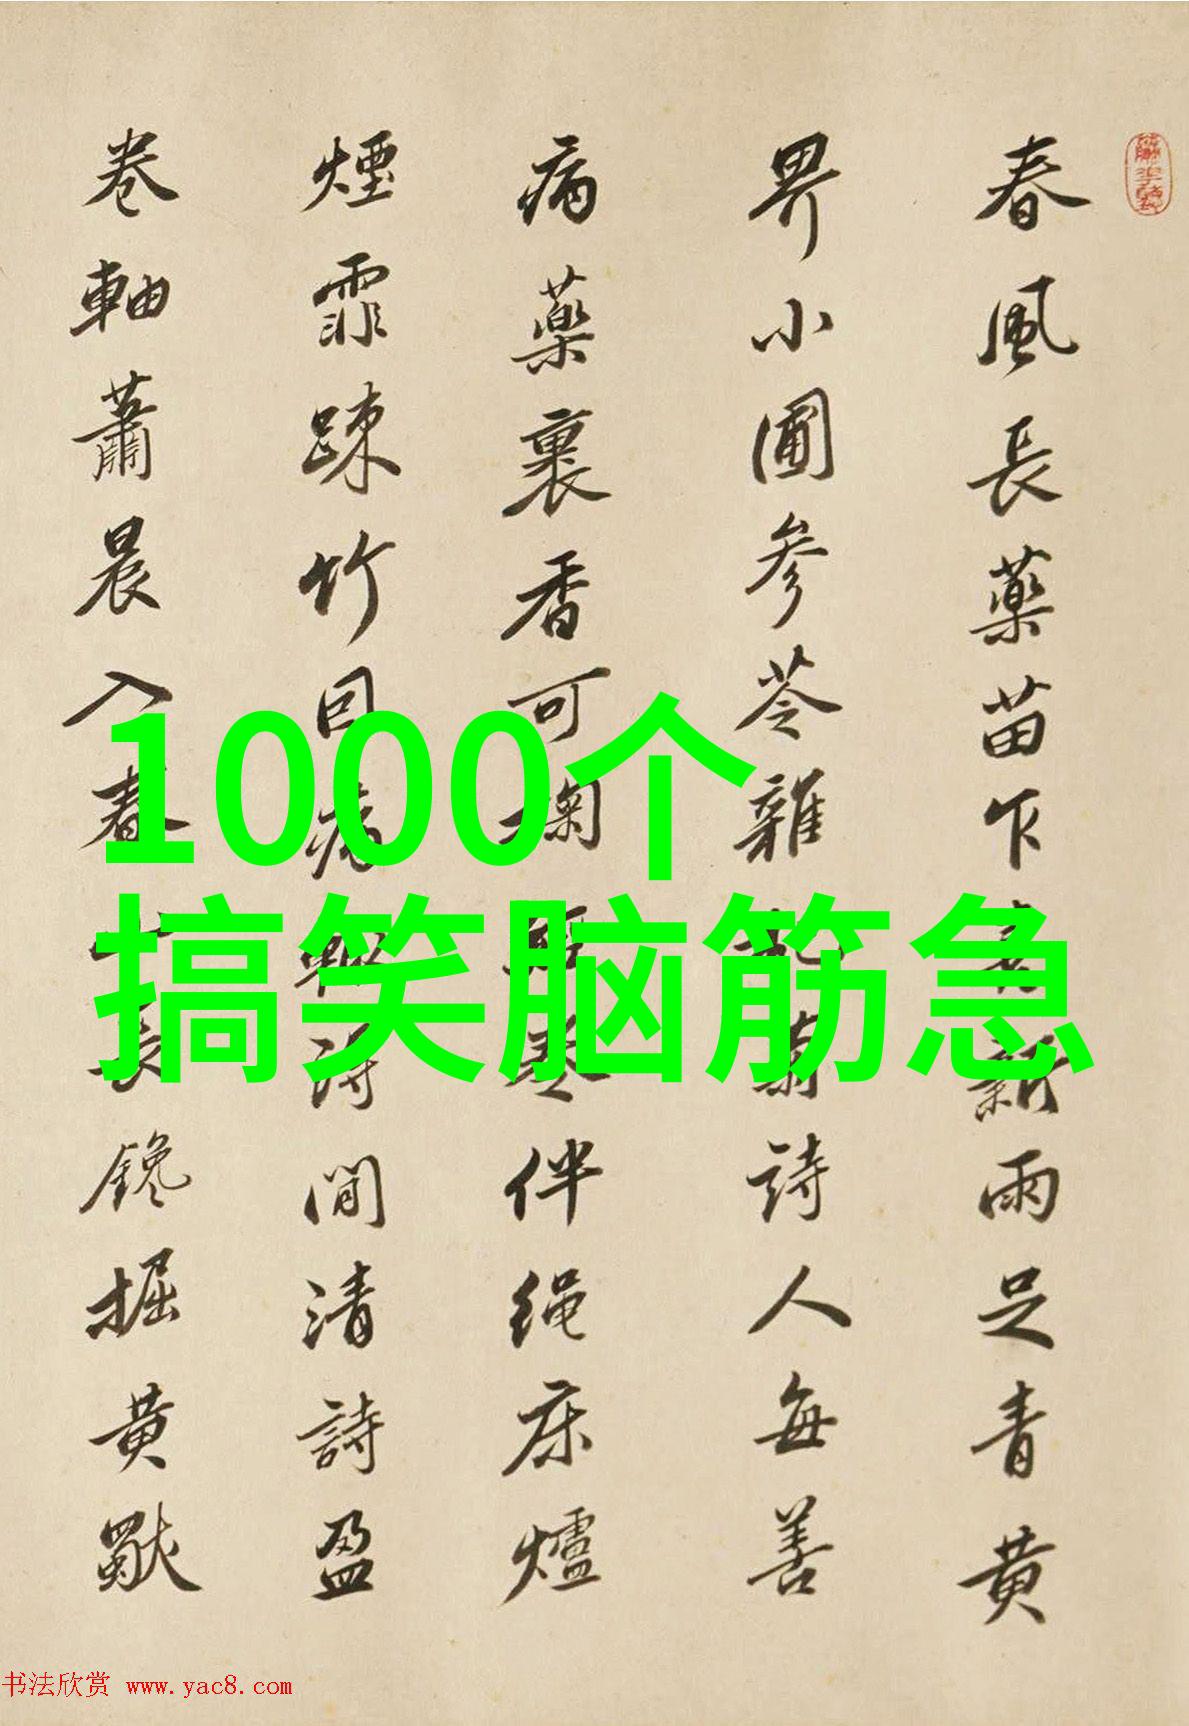 春風長藥苗下新雨足青黄
界小圃参苓雜菊詩人每善
病藥裹香可掬卷伴绳床爐
煙霏踈竹回病閒清詩盈
卷軸蕭晨入春長鑱掘黄
1000个
搞笑脑筋急
书法欣赏 www.yac8.com